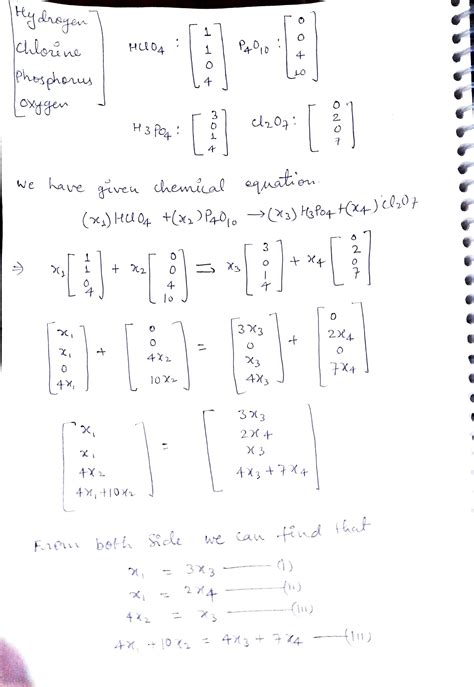 [Hydrogen
Chlorine
Phosphorus
Oxygen]
HClO4 : [1 1 0 4]
P4O10 : [0 0 4 10]
H3PO4 : [3 0 1 4]
Cl2O7 : [0 2 0 7]
We have given chemical equation.
(x1) HClO4 + (x2) P4O10 → (x3) H3PO4 + (x4) Cl2O7
⇒ x1 [1 1 0 4] + x2 [0 0 4 10] = x3 [3 0 1 4] + x4 [0 2 0 7]
[x1 x1 0 4x1] + [0 0 4x2 10x2] = [3x3 0 x3 4x3] + [0 2x4 0 7x4]
[x1 x1 4x2 4x1+10x2] = [3x3 2x4 x3 4x3+7x4]
From both side we can find that
x1 = 3x3 —— (i)
x1 = 2x4 —— (ii)
4x2 = x3 —— (iii)
4x1 + 10x2 = 4x3 + 7x4 —— (iii)